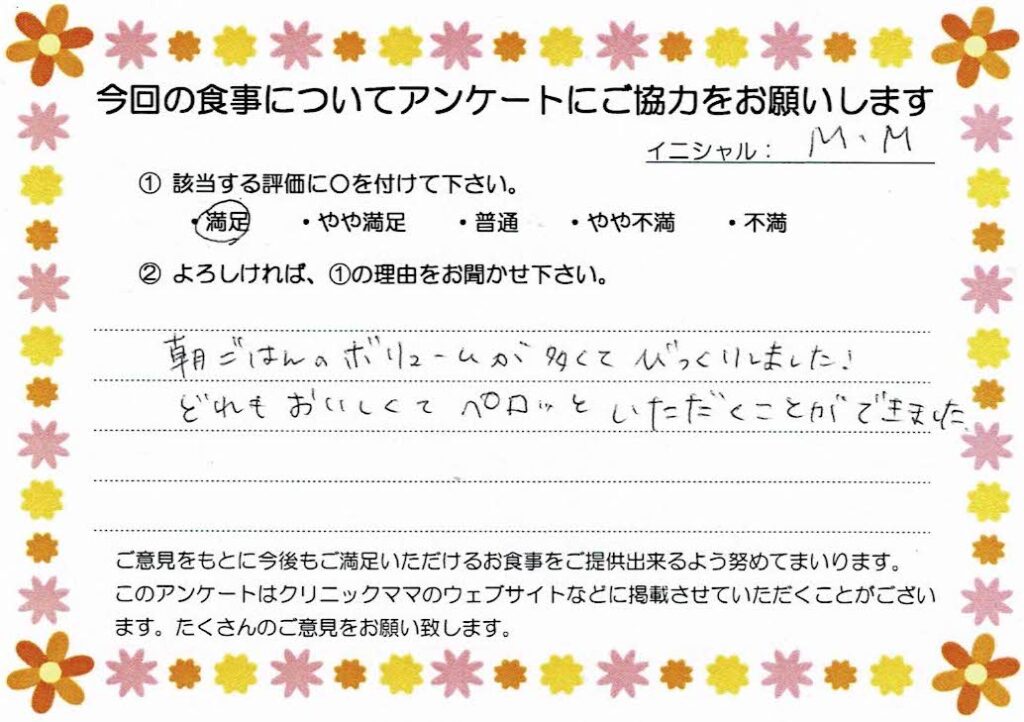 今回の食事についてアンケートにご協力をお願いします
イニシャル： M.M
① 該当する評価に〇を付けて下さい。
・満足 ・やや満足 ・普通 ・やや不満 ・不満
② よろしければ、①の理由をお聞かせ下さい。
朝ごはんのボリュームが多くてびっくりしました!
どれもおいしくてペロッといただくことができました。
ご意見をもとに今後もご満足いただけるお食事をご提供出来るよう努めてまいります。
このアンケートはクリニックママのウェブサイトなどに掲載させていただくことがござい
ます。たくさんのご意見をお願い致します。